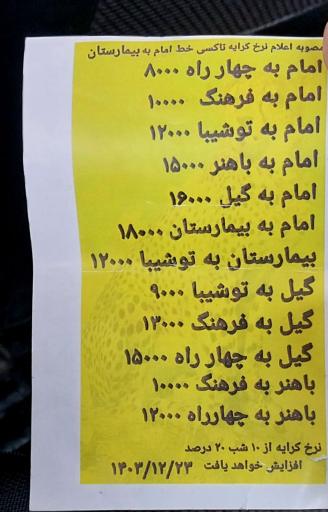 مصوبه اعلام نرخ کرایه تاکسی خط امام به بیمارستان
امام به چهار راه ۸۰۰۰
امام به فرهنگ ۱۰۰۰۰
امام به توشیبا ۱۲۰۰۰
امام به باهنر ۱۵۰۰۰
امام به گیل ۱۶۰۰۰
امام به بیمارستان ۱۸۰۰۰
بیمارستان به توشیبا ۱۲۰۰۰
گیل به توشیبا ۹۰۰۰
گیل به فرهنگ ۱۳۰۰۰
گیل به چهار راه ۱۵۰۰۰
باهنر به فرهنگ ۱۰۰۰۰
باهنر به چهارراه ۱۲۰۰۰
نرخ کرایه از ۱۰ شب ۲۰ درصد
افزایش خواهد یافت ۱۴۰۳/۱۲/۲۳